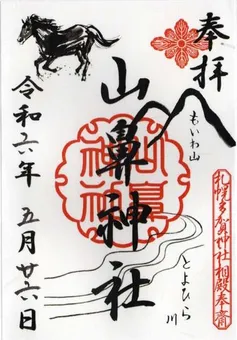 奉拝
もいわ山
札幌多賀神社相殿奉斎
山鼻神社
とよひら川
令和六年 五月廿六日